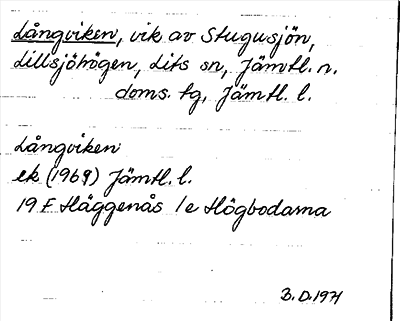 Långviken, vik av Stugusjön,
Lillsjöhögen, Lits sn, Jämtl. n.
doms. tg, Jämtl. l.
Långviken
ek (1969) Jämtl. l.
19 F Häggenås 1e Högbodarna
B.D. 1971